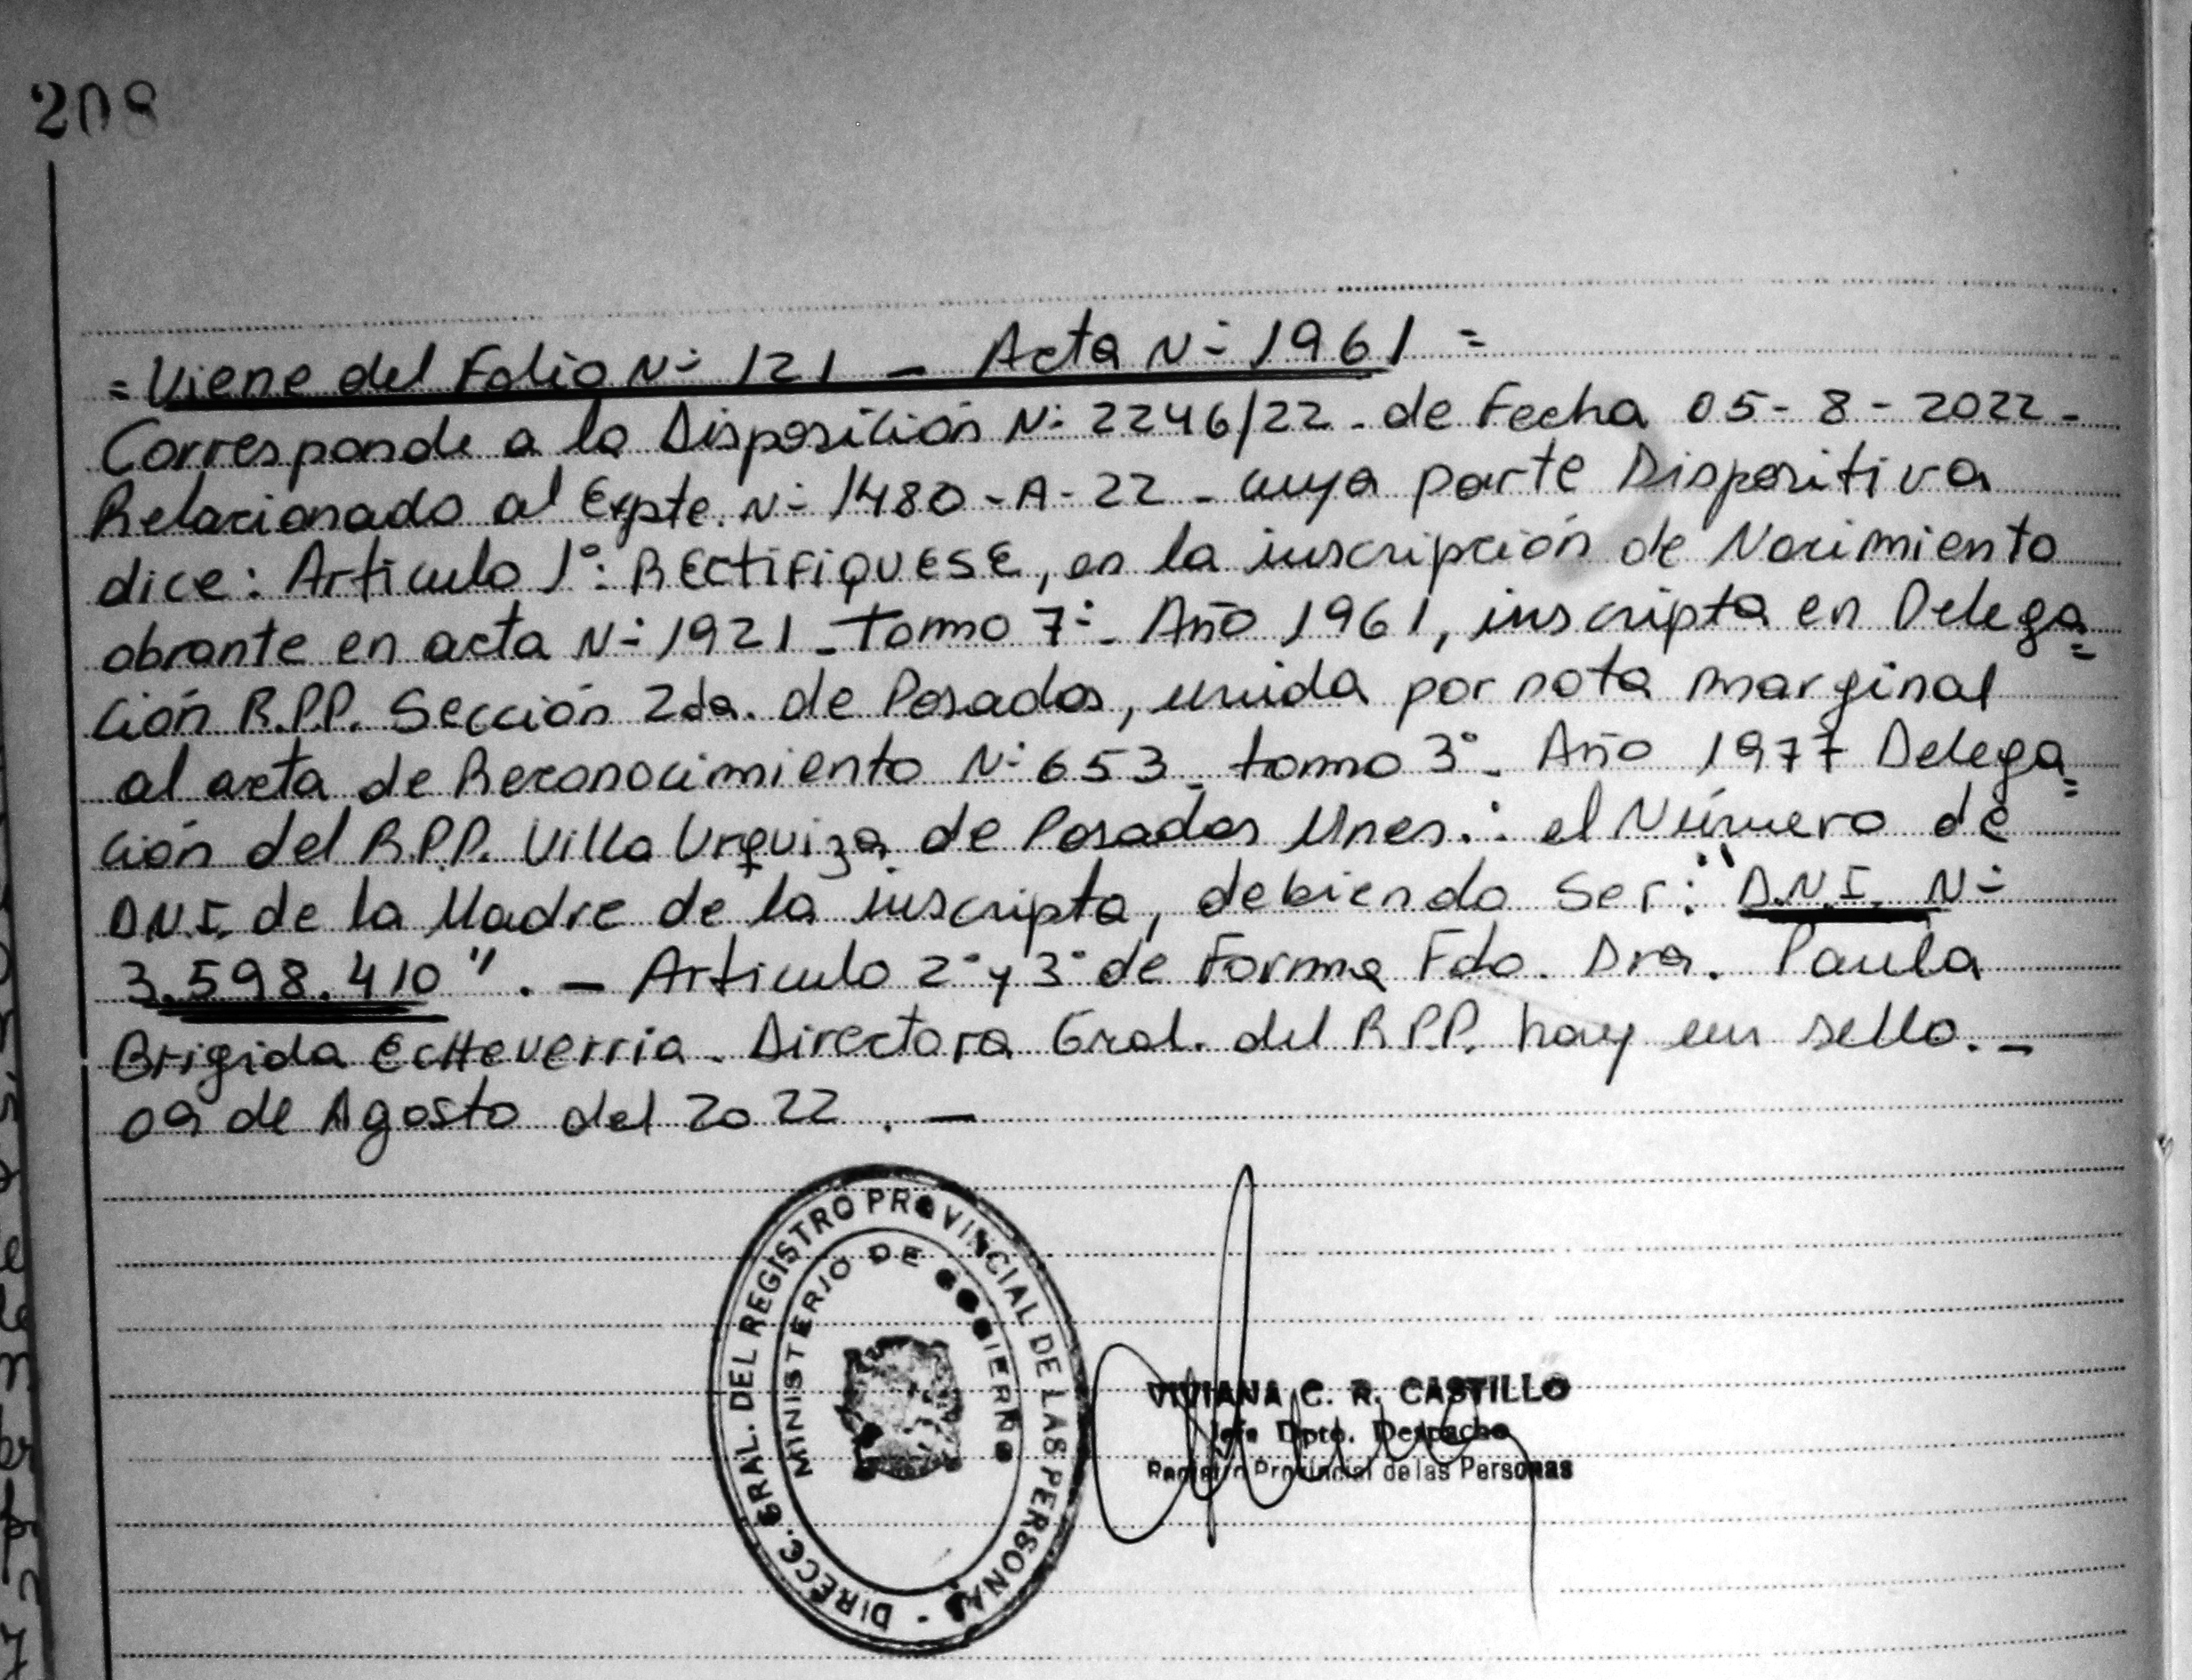 208
= Viene del Folio N- 121 - Acta N- 1961 =
Corresponde a la Disposición N- 2246/22 - de Fecha 05-8-2022-
Relacionado al Expte. N- 1480-A-22 - cuya parte Dispositiva
dice: Articulo 1°: RECTIFIQUESE, en la inscripción de Nacimiento
obrante en acta N- 1921 - tomo 7- - Año 1961, inscripta en Delega=
ción R.P.P. Sección 2da. de Posadas, unida por nota marginal
al acta de Reconocimiento N- 653 - tomo 3° - Año 1977 Delega=
ción del R.P.P. Villa Urquiza de Posadas Mnes.: el Número de
D.N.I. de la Madre de la inscripta, debiendo Ser: "D.N.I. N-
3.598.410". - Articulo 2° y 3° de Forma Fdo. Dra. Paula
Brigida Echeverria. Directora Gral. del R.P.P. hay un sello.-
09 de Agosto del 2022.-
DIRECC. GRAL. DEL REGISTRO PROVINCIAL DE LAS PERSONAS -
MINISTERIO DE GOBIERNO
VIVIANA C. R. CASTILLO
Jefa Dpto. Despacho
Registro Provincial de las Personas